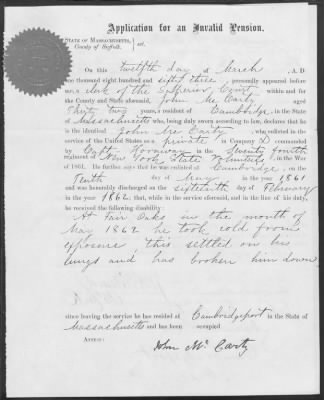 Application for an Invalid Pension.
STATE OF MASSACHUSETTS,
County of Suffolk. } sst.
On this twelfth day of March, A. D.
one thousand eight hundred and sixty three, personally appeared before
me, a clerk of the Superior Court within and for
the County and State aforesaid, John Mc Carty aged
Thirty two years, a resident of Cambridge, in the State
of Massachusetts who, being duly sworn according to law, declares that he
is the identical John Mc Carty, who enlisted in the
service of the United States as a private in Company D commanded
by Capt in the Seventy fourth
regiment of New York State Volunteers, in the War
of 1861. He further says that he was enlisted at Cambridge, on the
Tenth day of May in the year 1861
and was honorably discharged on the sixteenth day of February
in the year 1862; that, while in the service aforesaid, and in the line of his duty,
he received the following disability:
At Fair Oaks in the month of
May 1862 he took cold from
exposure, this settled on his
lungs and has broken him down
since leaving the service he has resided at Cambridgeport in the State of
Massachusetts and has been occupied
ATTEST:
John Mc Carty